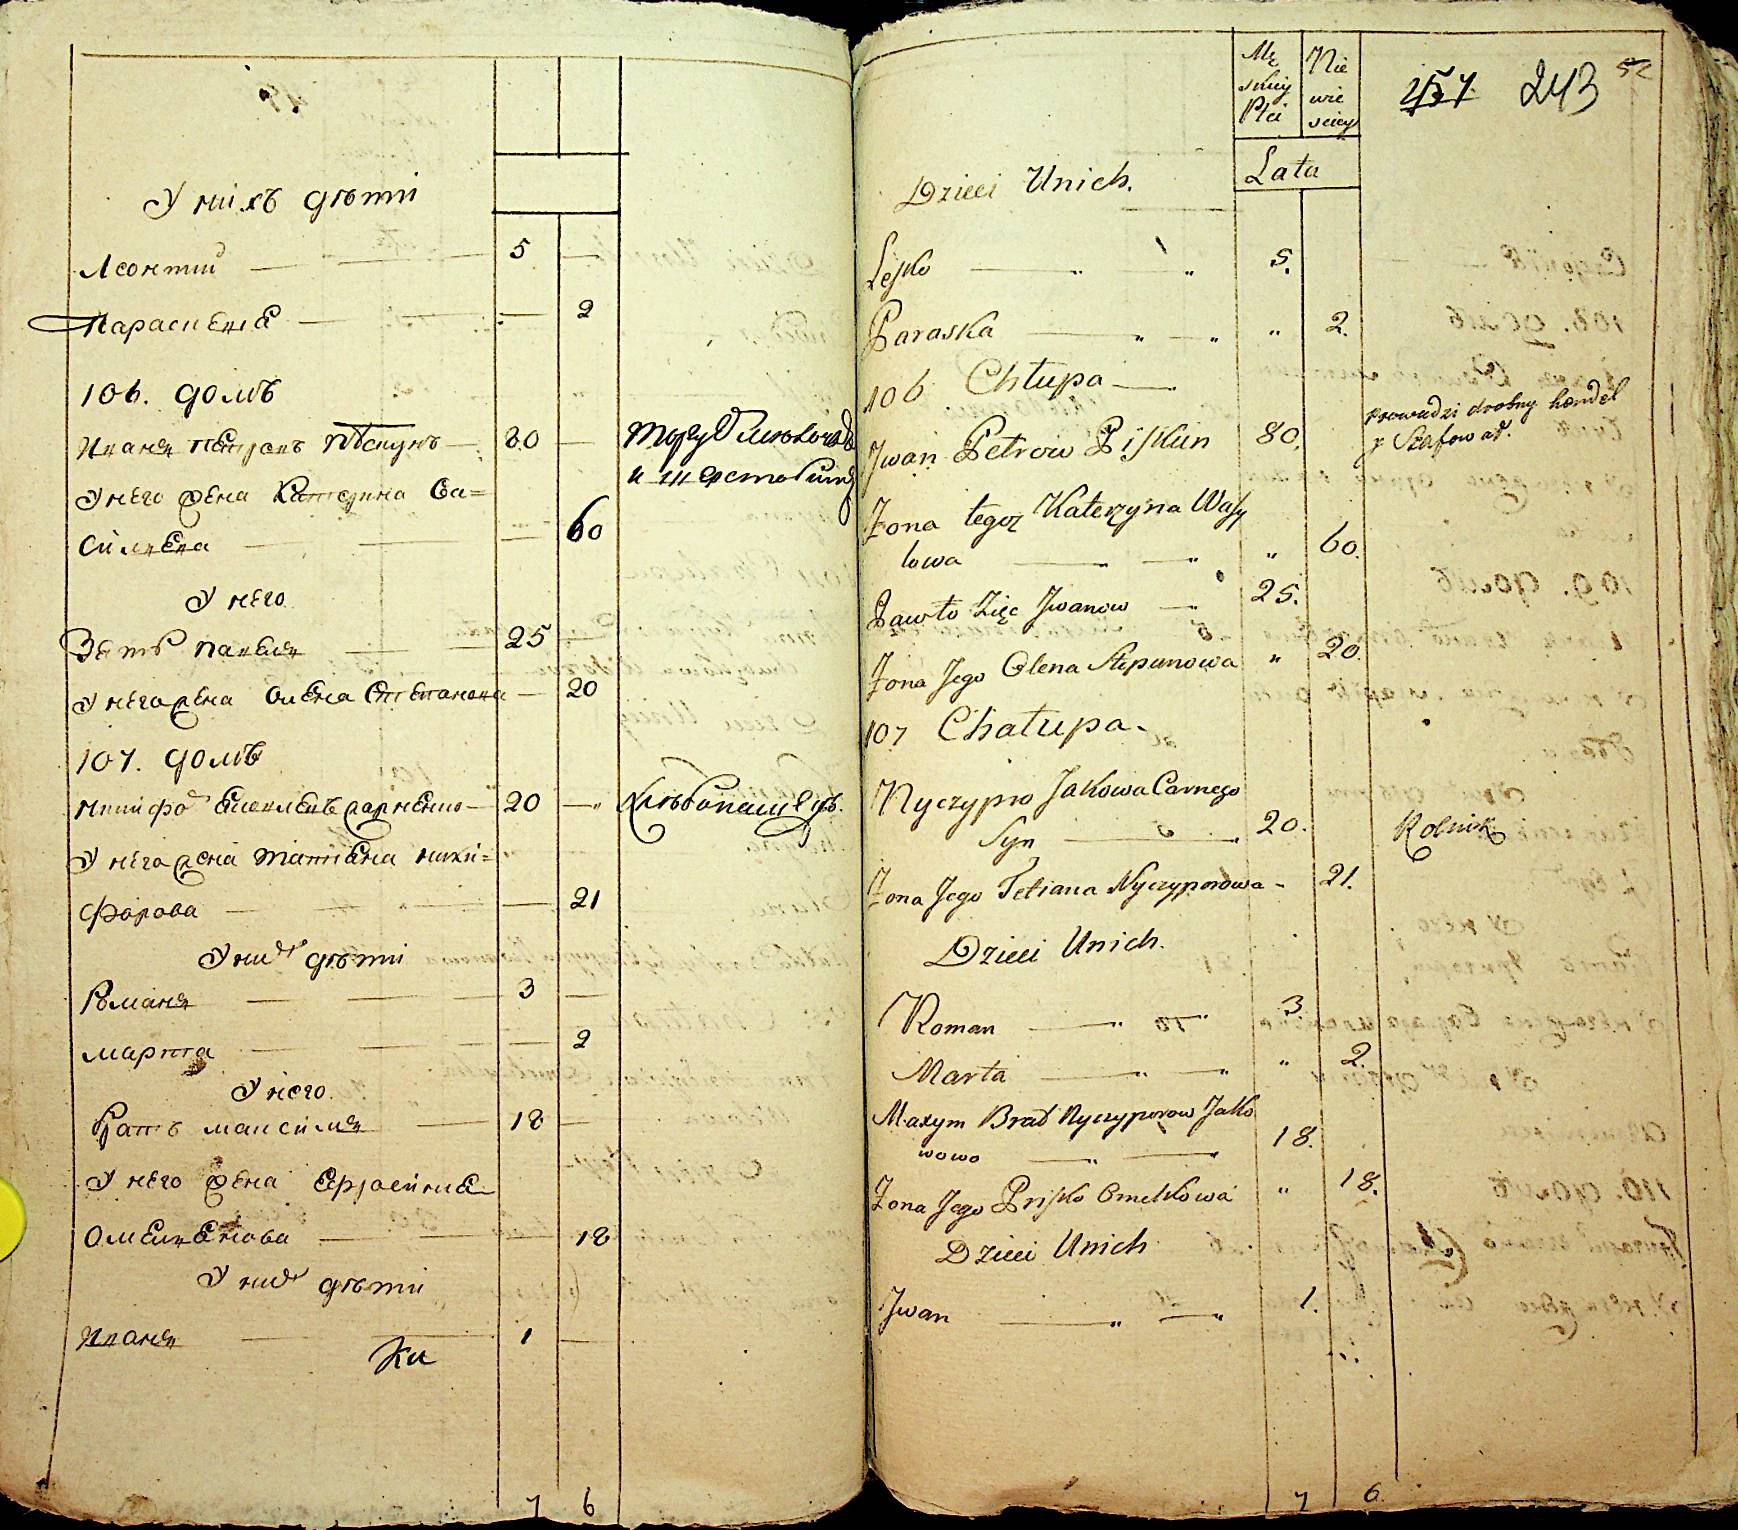 У нихъ дѣти
Леонтий 5
Параскева 2
106. домъ
Иванъ Петровъ Пѣскунъ 80
У него жена Катерина Ва=
силиева 60
У него
Зять Павелъ 25
У него жена Олена Степанова 20
107. домъ
Никифоръ 20 Хлѣбопашецъ.
У него жена Татиана Ники=
форова 21
У нихъ дѣти
Романъ 3
Марта 2
У него.
Братъ Максимъ 18
У него жена
Омелиенова 18
У нихъ дѣти
Иванъ 1
7 6
Mę Nie
skiey wie
Płci sciey
257 243 52
Lata
Dzieci Unich.
Lesko 5.
Paraska 2.
106 Chłupa
prowadzi drobny handel
Jwan Petrow Piskun 80.
Zona tegoż Katerzyna Wasy
lowa 60.
Pawło Zięc Jwanow 25.
Zona Jego Olena Stepanowa 20.
107 Chałupa
Nyczypro Jakowa Carnego
Syn 20. Rolnik
Zona Jego Tetiana Nyczyporowa 21.
Dzieci Unich.
Roman 3
Marta 2.
Maxym Brat Nyczyporow Jako
wowo 18.
Zona Jego Prisko Omelkowa 18.
Dzieci Unich
Jwan 1.
7 6.